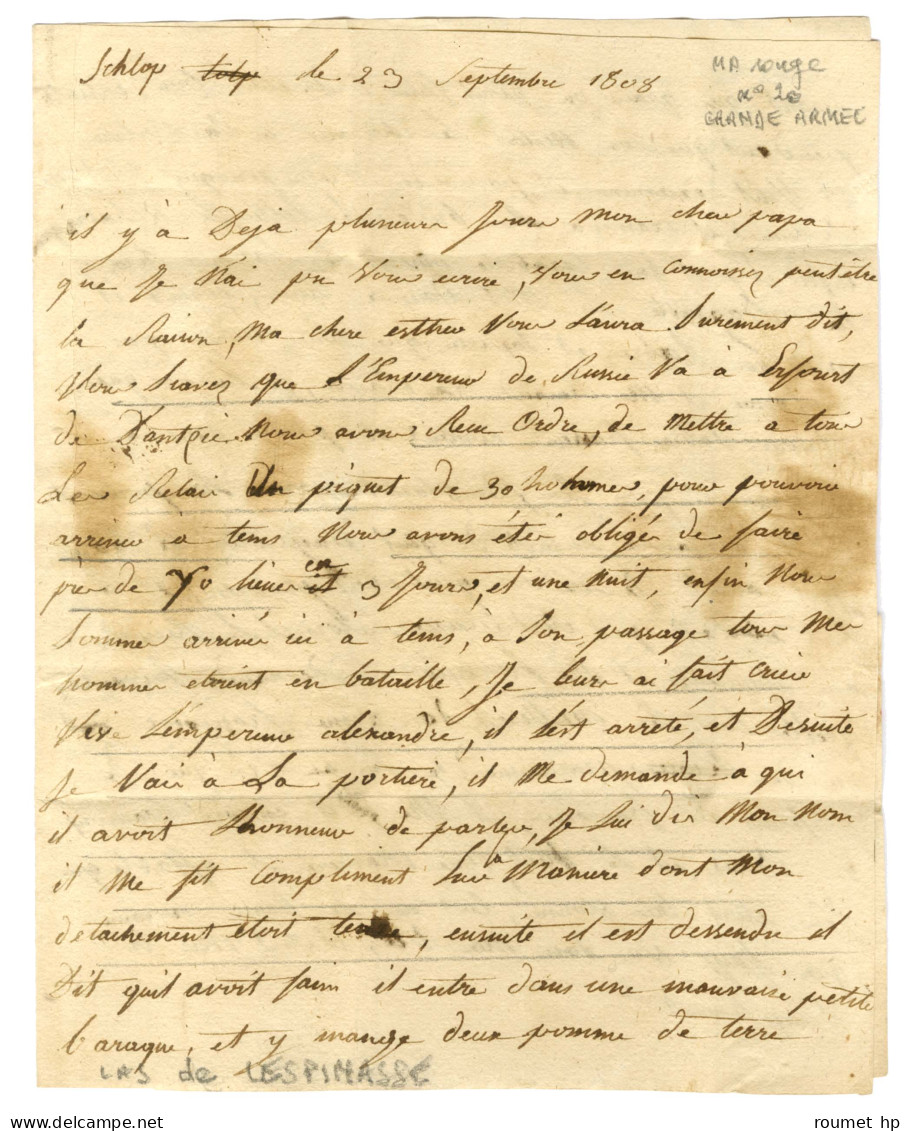 Schlop tolp le 23 Septembre 1808
MA rouge
n° 20
GRANDE ARMEE
il y à Deja plusieurs Jours mon cher papa
que Je N'ai pu Vous ecrire, Vous en connoissez peutêtre
la Raison, Ma chere esther Vous L'aura Surement dit,
Vous Savez que L'Empereur de Russie Va à Erfourt
de Dantzic Nous avons Recu Ordre, de Mettre à tous
Les Relais Un piquet de 30 hommes, pour pouvoir
arriver à tems Nous avons étés obligés de faire
près de 70 lieues en 3 Jours, et une Nuit, enfin Nous
Sommes arrivés ici à tems, à Son passage tous Mes
hommes etoient en bataille, Je leurs ai fait crier
Vive L'empereur alexandre, il s'est arreté, et Desuite
Je Vais à La portiere, il Me demande à qui
il avoit L'honneur de parler, Je Lui dis Mon Nom
il Me fit Compliment Sur la Maniere dont Mon
detachement étoit tenue, ensuite il est dessendu il
Dit quil avoit faim il entre dans une mauvaise petite
baraque, et y mange deux pomme de terre
LAS de LESPINASSE
roumet hp